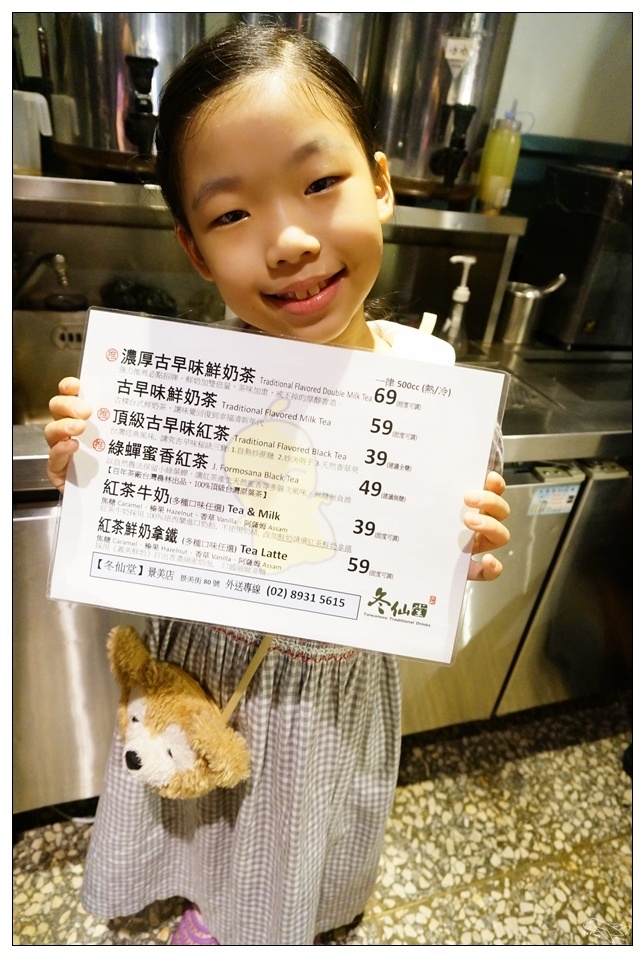 一律 500cc (熱/冷)
推 濃厚古早味鮮奶茶 Traditional Flavored Double Milk Tea 69 (甜度可調)
古早味鮮奶茶 Traditional Flavored Milk Tea 59 (甜度可調)
推 頂級古早味紅茶 Traditional Flavored Black Tea 39 (建議全糖)
推 綠蟬蜜香紅茶 J. Formosana Black Tea 49 (建議無糖)
【百年茶廠台灣森林出品,100%頂級台灣原葉茶】
紅茶牛奶(多種口味任選) Tea & Milk 39 (甜度可調)
焦糖 Caramel、榛果 Hazelnut、香草 Vanilla、阿薩姆 Assam
紅茶鮮奶拿鐵 (多種口味任選) Tea Latte 59 (甜度可調)
焦糖 Caramel、榛果 Hazelnut、香草 Vanilla、阿薩姆 Assam
【冬仙堂】景美店 景美街 80 號 外送專線 (02) 8931 5615
冬仙堂
Taiwanese Traditional Drinks